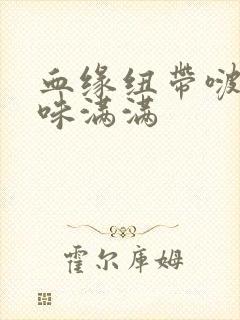 血缘纽带啵
咪满满
霍尔库姆